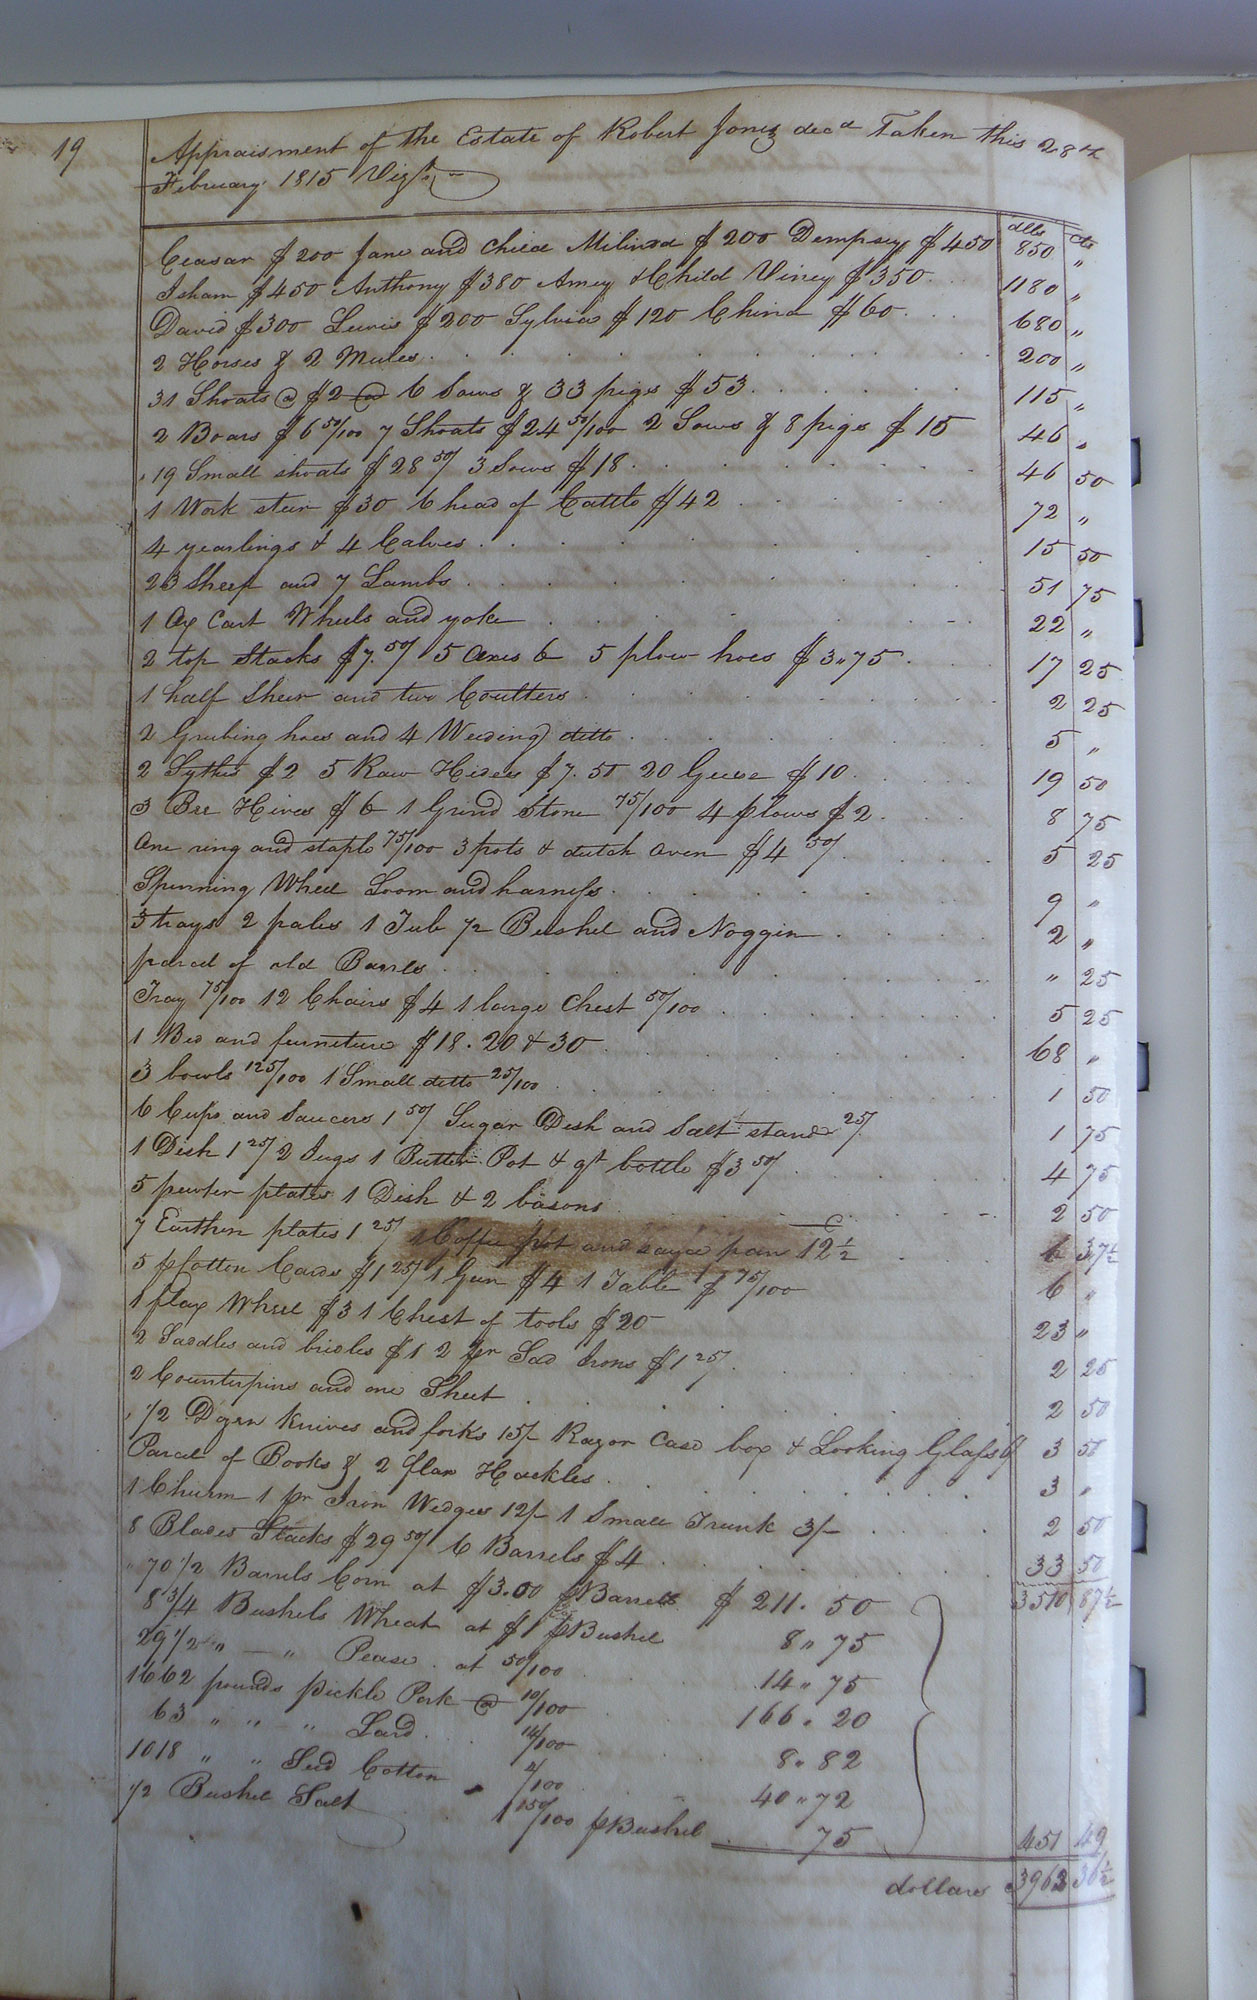 19
Appraisment of the Estate of Robert Jones decd Taken this 28th
February 1815 Vizt
dlls cts
Ceasar $200 Jane and child Milinda $200 Dempsey $450 850 "
Isham $450 Anthony $380 Amey & Child Viney $350 1180 "
David $300 Lewis $200 Sylvia $120 China $60 680 "
2 Horses & 2 Mules 200 "
31 Shoats @ $2 6 Sows & 33 piges $53 115 "
2 Boars $6 50/100 7 Shoats $24 50/100 2 Sows & 8 piges $15 46 "
19 Small shoats $28 50/ 3 Sows $18 46 50
1 Work steer $30 6 head of Cattle $42 72 "
4 yearlings & 4 Calves 15 50
23 Sheep and 7 Lambs 51 75
1 Ox Cart Wheels and yoke 22 "
2 top Stacks $7.50/ 5 axes 6 5 plow hoes $3"75 17 25
1 half Shear and two Coulters 2 25
2 Grubing hoes and 4 Weeding ditto 5 "
2 Sythes $2 5 Raw Hides $7.50 20 Geese $10 19 50
3 Bee Hives $6 1 Grind Stone 75/100 4 plows $2 8 75
One ring and staple 75/100 3 pots & dutch oven $4 50/ 5 25
Spinning Wheel Loom and harness 9 "
3 trays 2 pales 1 Tub 1/2 Bushel and Noggin 2 "
parcel of old Barrels " 25
Tray 75/100 12 Chairs $4 1 large Chest 50/100 5 25
1 Bed and furniture $18.20 & 30 68 "
3 bowls 125/100 1 Small ditto 25/100 1 50
6 Cups and Saucers 1 50/ Sugar Dish and Salt stand 25/ 1 75
1 Dish 1 25/ 2 Jugs 1 Butter Pot & qt bottle $3 50/ 4 75
5 pewter plates 1 Dish & 2 basons 2 50
7 Earthen plates 1 25/ 1 Coffee pot and pan 12 1/2 37 1/2
5 p Cotton Cards $1 25/ 1 Gun $4 1 Table $ 75/100 6 "
1 flax Wheel $3 1 Chest of tools $20 23 "
2 Saddles and bridles $1 2 pr Sad Irons $1 25/ 2 25
2 Counterpins and one Sheet 2 50
1/2 Dozen Knives and forks 15/- Razor Case box & Looking Glass 6/ 3 50
Parcel of Books & 2 flax Hackles 3 "
1 Churm 1 pr Iron Wedges 12/- 1 Small Trunk 3/- 2 50
8 Blades Stacks $29 50/ 6 Barrels $4 33 50
3510 87 1/2
70 1/2 Barrels Corn at $3.00 p Barrel $ 211.50
8 3/4 Bushels Wheat at $1 p Bushel 8"75
29 1/2 " " Pease at 50/100 14"75
1662 pounds pickle Pork @ 10/100 166.20
63 " " " Lard 14/100 8.82
1018 " " Seed Cotton 4/100 40"72
1/2 Bushel Salt 1 50/100 p Bushel 75
451 49
dollars 3962 36 1/2